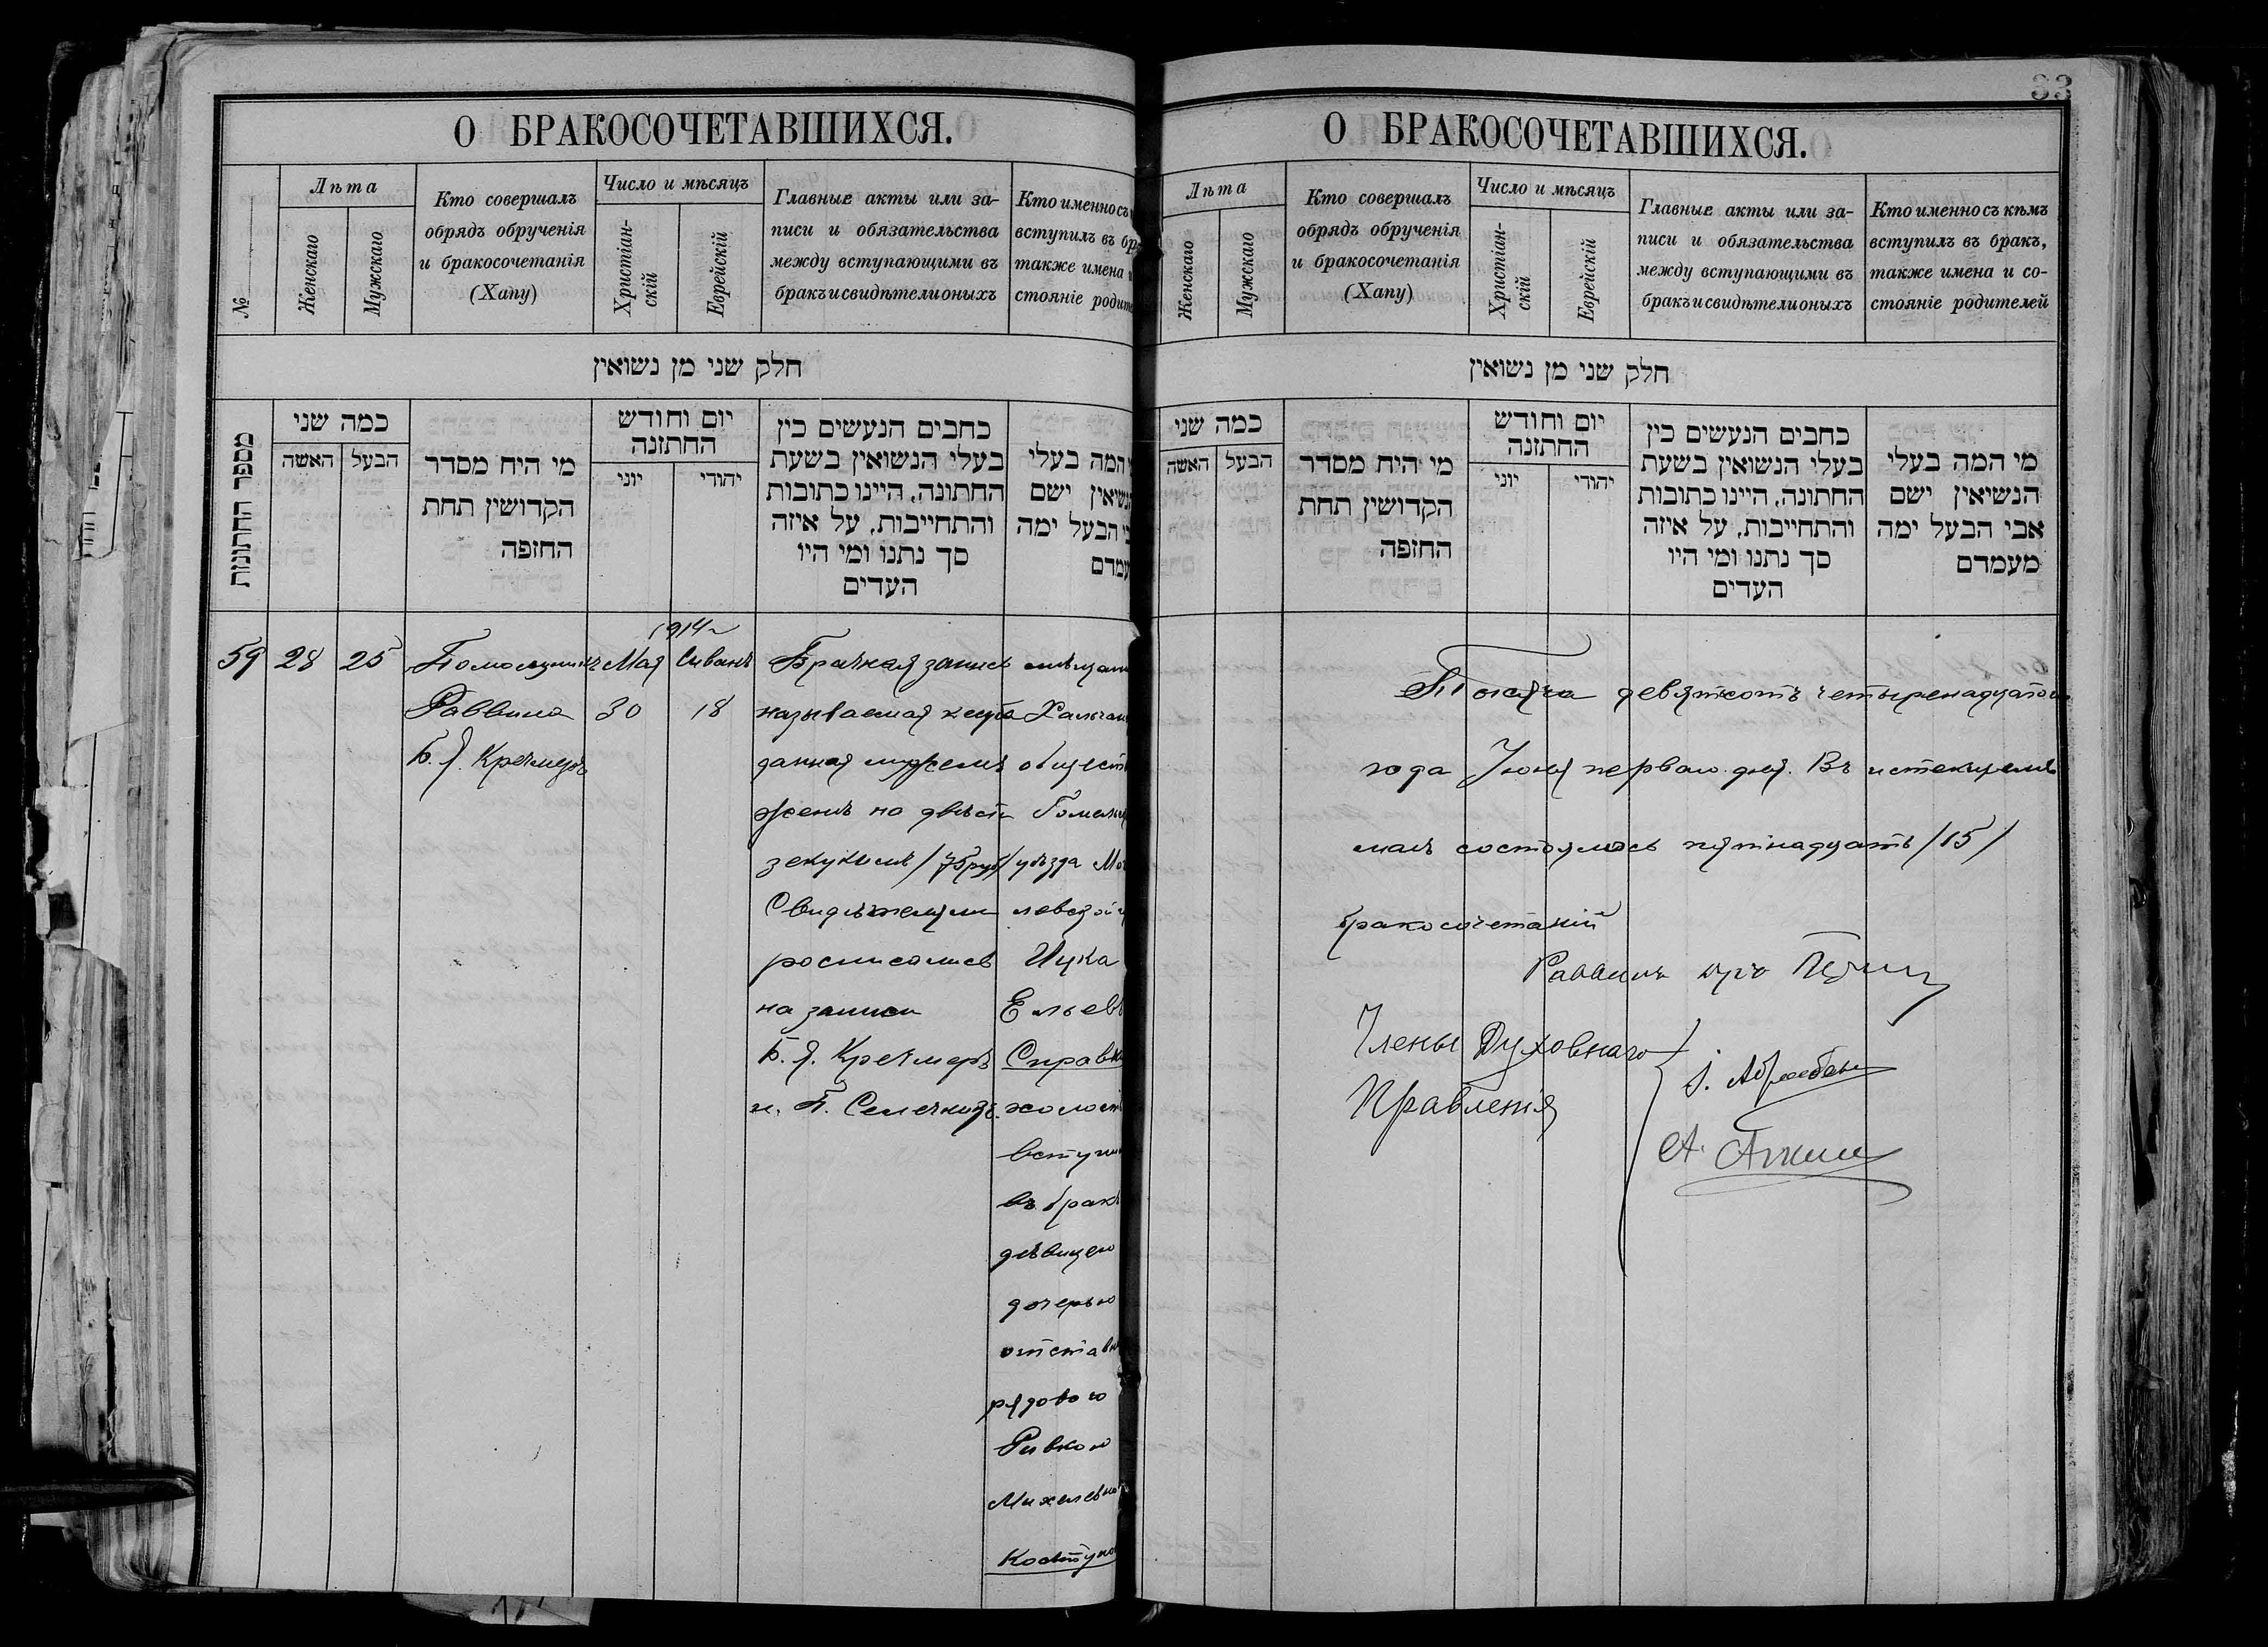 О БРАКОСОЧЕТАВШИХСЯ.
№
Лѣта
Женскаго
Мужскаго
Кто совершалъ
обрядъ обрученія
и бракосочетанія
(Хапу)
Число и мѣсяцъ
Христіан-
скій
Еврейскій
Главные акты или за-
писи и обязательства
между вступающими въ
бракъ и свидѣтели оныхъ
Кто именно съ
вступилъ въ бр
также имена и
стояніе родит
חלק שני מן נשואין
מספר החתונות
כמה שני
האשה
הבעל
מי היח מסדר
הקדושין תחת
החזפה
יום וחודש
החתזנה
יוני
יהודי
כחבים הנעשים כין
בעלי הנשואין בשעת
החתונה, היינו כתובות
והתחייבות, על איזה
סך נתנו ומי היו
העדים
המה בעלי
נשיאין ישם
בי הבעל ימה
עמדם
1914
59
28
25
Помощникъ
Раввина
Б. Я. Кречмеръ
Мая
30
Сиванъ
18
Брачная запись
называемая кетуба
данная мужемъ
женѣ на двѣсти
зекукимъ /75 руб/
Свидѣтели
росписались
на записи
Б. Я. Кречмеръ
и П.
мѣщан
Хальчан
обществ
Гомельск
уѣзда Мог
левской г
Ицка
Ельевъ
Справк
холост
вступи
въ бракъ
дѣвицею
дочерью
отставн
рядового
Ривкою
Михелевно
33
О БРАКОСОЧЕТАВШИХСЯ.
Лѣта
Женскаго
Мужскаго
Кто совершалъ
обрядъ обрученія
и бракосочетанія
(Хапу)
Число и мѣсяцъ
Христіан-
скій
Еврейскій
Главные акты или за-
писи и обязательства
между вступающими въ
бракъ и свидѣтели оныхъ
Кто именно съ кѣмъ
вступилъ въ бракъ,
также имена и со-
стояніе родителей
חלק שני מן נשואין
כמה שני
האשה
הבעל
מי היח מסדר
הקדושין תחת
החזפה
יום וחודש
החתזנה
יוני
יהודי
כחבים הנעשים כין
בעלי הנשואין בשעת
החתונה, היינו כתובות
והתחייבות, על איזה
סך נתנו ומי היו
העדים
מי המה בעלי
הנשיאין ישם
אבי הבעל ימה
מעמדם
Тысяча девятьсотъ четырнадцатого
года Іюня перваго дня. Въ истекшемъ
маѣ состоялось пятнадцать /15/
бракосочетаній
Раввинъ
Члены Духовнаго
Правленія